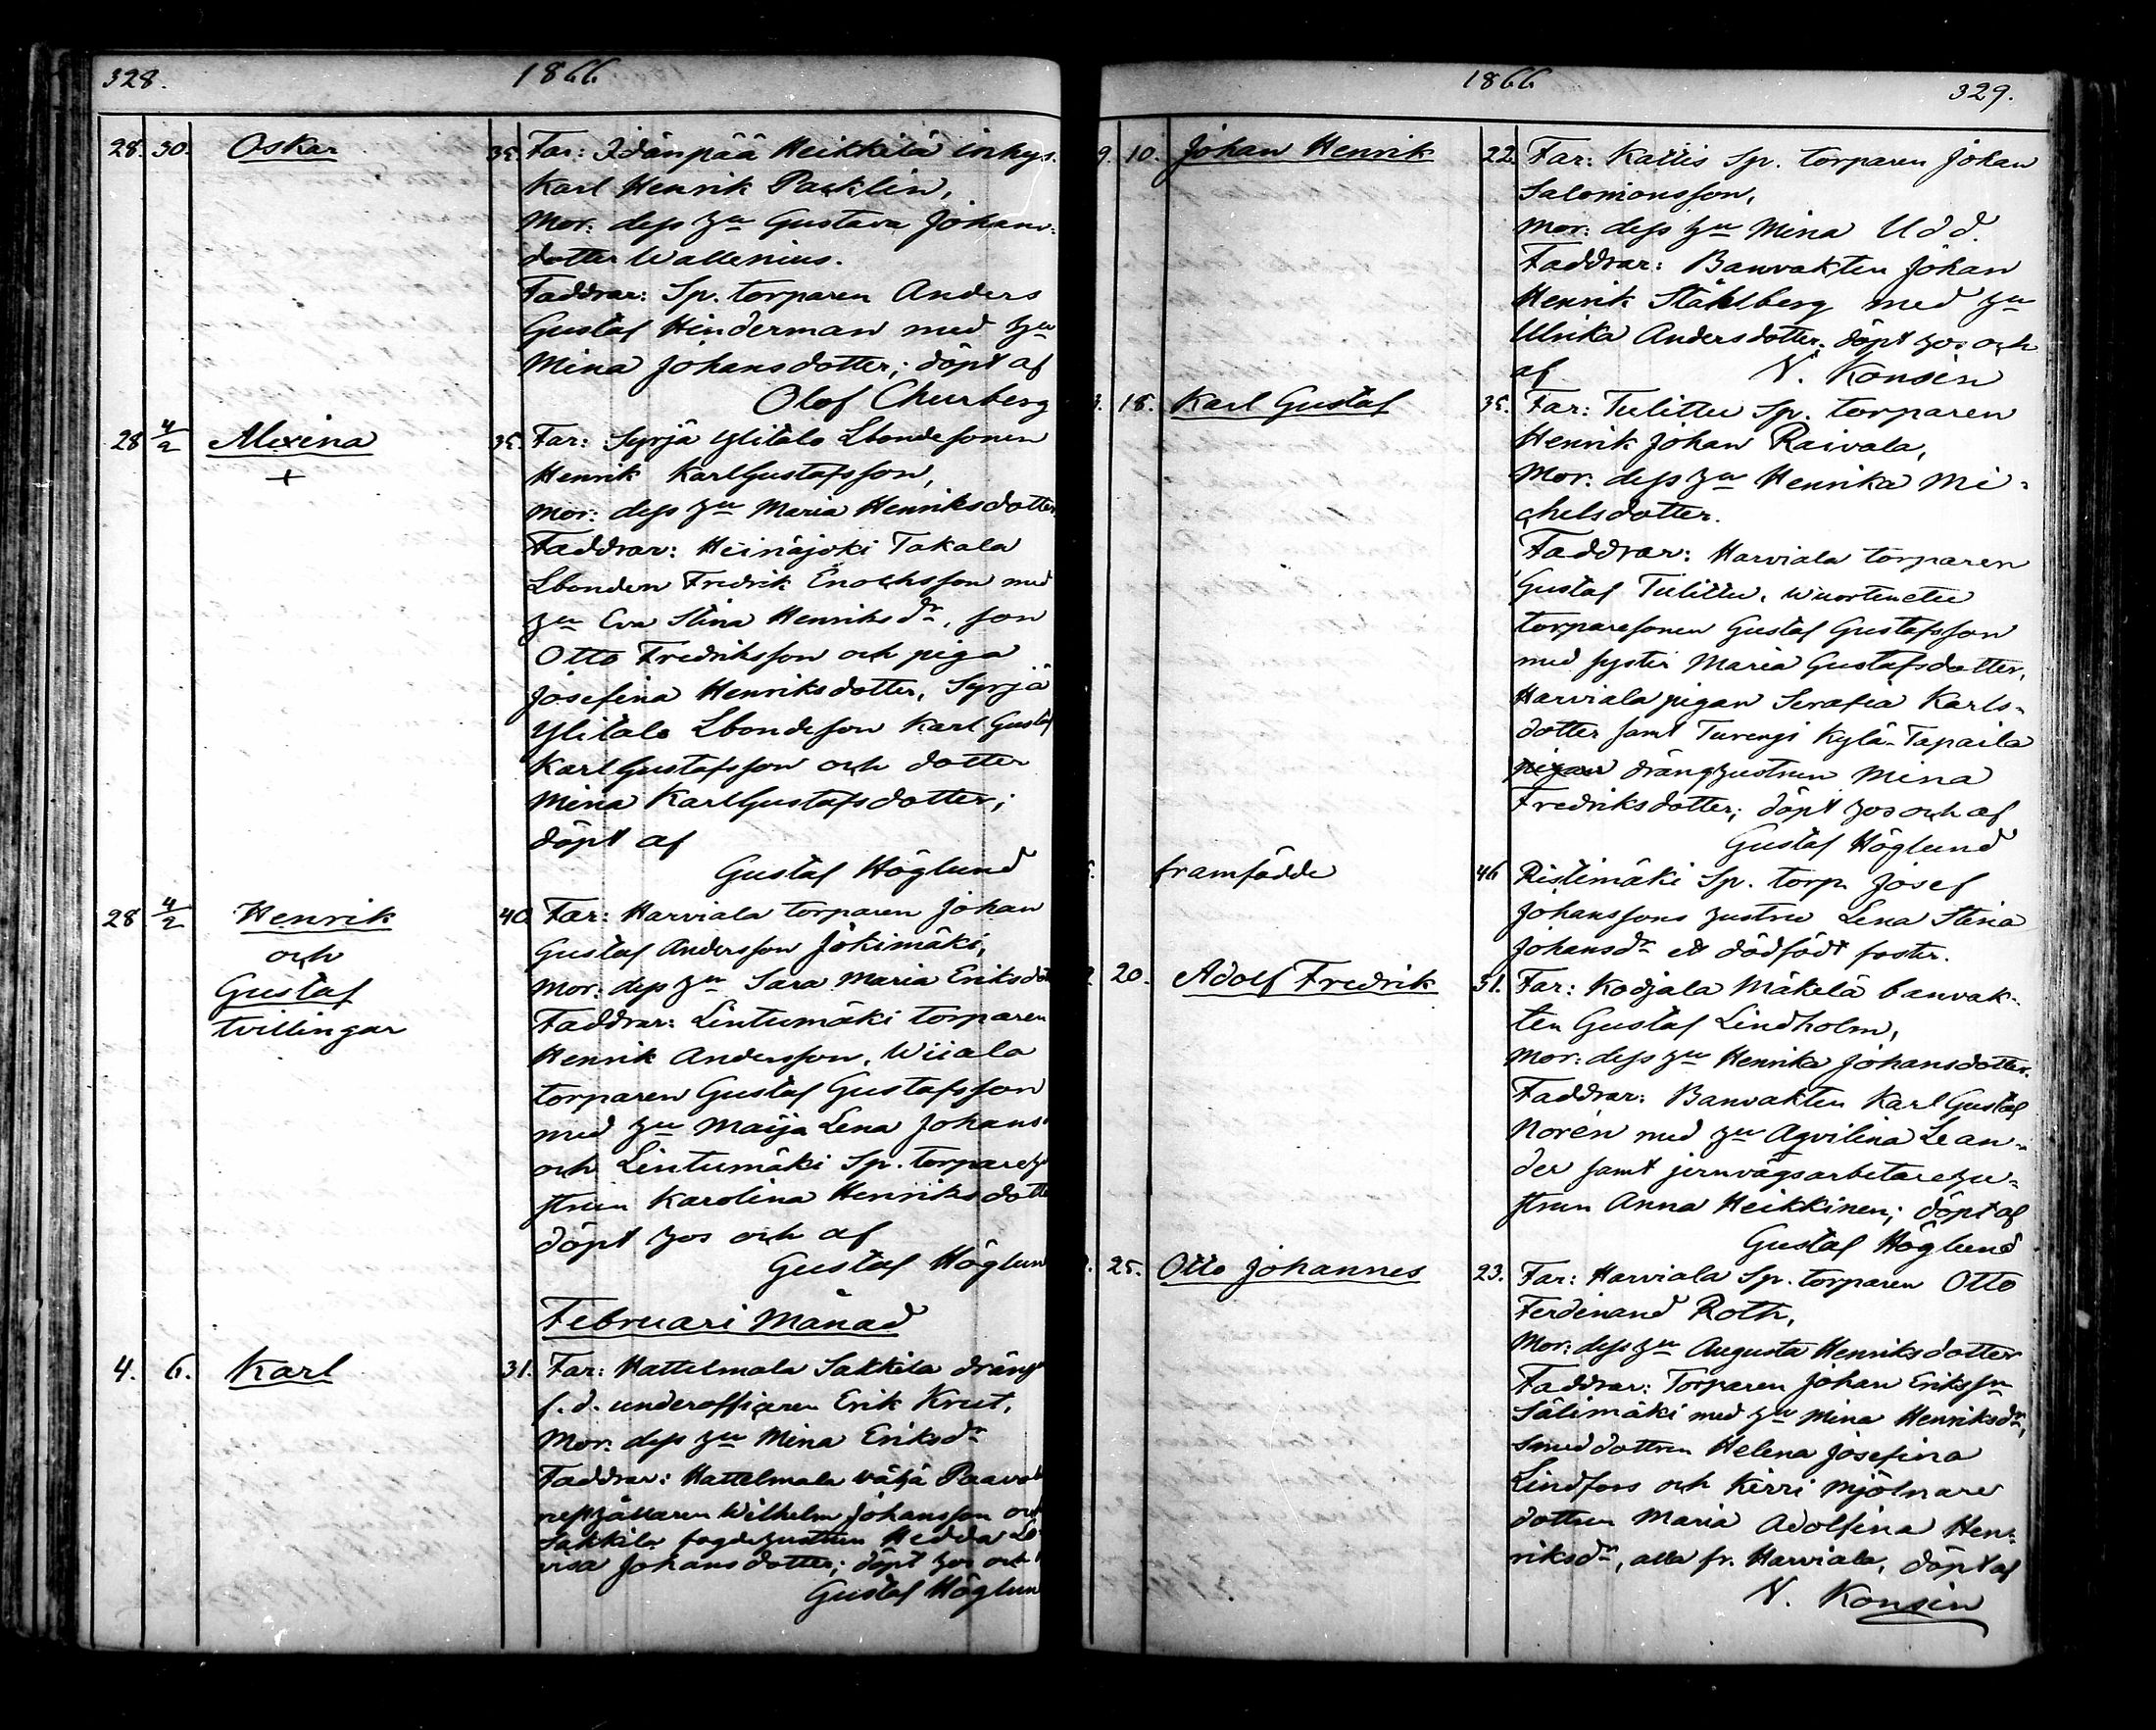 328.
1866
28. 30. Oskar 35. Far: Idänpää Heikkilä inhys.
Karl Henrik Packlin,
Mor: dess hu Gustava Johans-
dotter Wallenius.
Faddrar: Sp. torparen Anders
Gustaf Hinderman med hu
Mina Johansdotter; döpt af
Olof Churberg
28 4/2 Alexina 35. Far: Syrjä Ylitalo Lbondesonen
+ Henrik KarlGustafsson,
Mor: dess hu Maria Henriksdotter
Faddrar: Heinäjoki Takala
Lbonden Fredrik Enochsson med
hu Eva Stina Henriksdr, son
Otto Fredriksson och piga
Josefina Henriksdotter, Syrjä
Ylitalo Lbondeson Karl Gustaf
KarlGustafsson och dotter
Mina KarlGustafsdotter;
döpt af
Gustaf Höglund
28 4/2 Henrik 40. Far: Harviala torparen Johan
och Gustaf Andersson Jokimäki,
Gustaf Mor: dess hu Sara Maria Eriksdot
tvillingar Faddrar: Lintumäki torparen
Henrik Andersson, Wiiala
torparen Gustaf Gustafsson
med hu Maija Lena Johans
och Lintumäki Sp. torparehu
strun Karolina Henriksdotte
döpt hos och af
Gustaf Höglun
Februari Månad
4. 6. Karl 31. Far: Hattelmala Sakkila dräng
f. d. underofficeren Erik Krut,
Mor: dess hu Mina Eriksdr
Faddrar: Hattelmala Wähä Paavola
Wilhelm Johansson och
Sakkila fogdehustrun Hedda Lo
visa Johansdotter; döpt hos och
Gustaf Höglun
1866
329.
9. 10. Johan Henrik 22. Far: Kallis Sp. torparen Johan
Salomonsson,
Mor: dess hu Mina Udd.
Faddrar: Banvakten Johan
Henrik Ståhlberg med hu
Ulrika Andersdotter. döpt hos och
af N. Konsin
18. Karl Gustaf 35. Far: Tulittu Sp. torparen
Henrik Johan Raivala,
Mor: dess hu Henrika Mi-
chelsdotter.
Faddrar: Harviala torparen
Gustaf Tulittu, Wuortenetu
torparesonen Gustaf Gustafsson
med syster Maria Gustafsdotter,
Harviala pigan Serafia Karls-
dotter samt Turengi Kylä-Tapaila
pigan dränghustrun Mina
Fredriksdotter; döpt hos och af
Gustaf Höglund
framfödde 46 Ristimäki Sp. torp. Josef
Johanssons hustru Lena Stina
Johansdr ett dödfödt foster.
20. Adolf Fredrik 31. Far: Kodjala Mäkelä banvak-
ten Gustaf Lindholm,
Mor: dess hu Henrika Johansdotter.
Faddrar: Banvakten Karl Gustaf
Norén med hu Aqvilina Lean-
der samt jernvägsarbetarehu-
strun Anna Heikkinen; döpt af
Gustaf Höglund
25. Otto Johannes 23. Far: Harviala Sp. torparen Otto
Ferdinand Roth,
Mor: dess hu Augusta Henriksdotter
Faddrar: Torparen Johan Erikssn
Sälimäki med hu Mina Henriksdr,
Smeddottren Helena Josefina
Lindfors och Kirri Mjölnare
dottren Maria Adolfina Hen-
riksdr, alla fr. Harviala, döpt af
N. Konsin